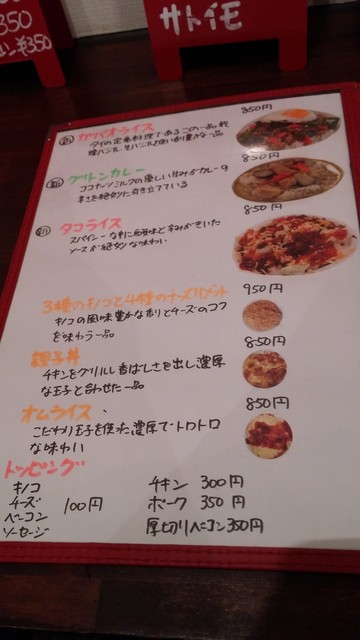 350
¥350
サトイモ
新 ガパオライス 850円
タイの定番料理であるこの一品
新 グリーンカレー 850円
ココナッツミルクの優しい甘みがカレーの
辛さを絶妙に引き立てている
新 タコライス 850円
スパイシーな中に酸味と辛みがきいた
ソースが絶妙な味わい
3種のキノコと4種のチーズリゾット 950円
キノコの風味豊かな香りとチーズのコク
を味わう一品
親子丼 850円
チキンをグリルし香ばしさを出し濃厚
な玉子と合わせた一品
オムライス 850円
こだわり玉子を使った濃厚でトロトロ
な味わい
トッピング
キノコ
チーズ
ベーコン
ソーセージ
100円
チキン 300円
ポーク 350円
厚切りベーコン 350円